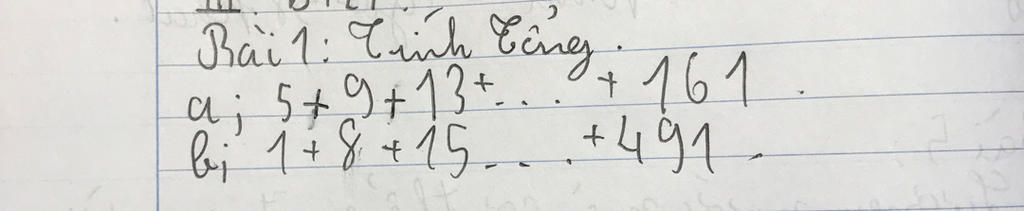 Bài 1: Tính tổng.
a; 5 + 9 + 13 + ... + 161.
b; 1 + 8 + 15 .... + 491.